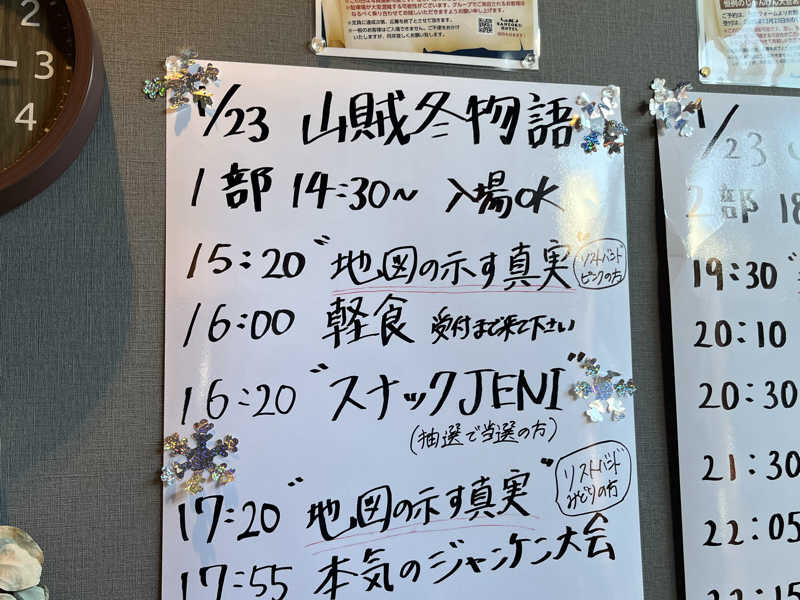 1/23 山賊冬物語
1部 14:30~ 入場OK
15:20 "地図の示す真実"
リストバンド
ピンクの方
16:00 軽食 受付まで来て下さい
16:20 "スナックJENI"
(抽選で当選の方)
17:20 "地図の示す真実"
リストバンド
みどりの方
17:55 本気のジャンケン大会
1/23
2部 18
19:30 "
20:10
20:30
21:30
22:05
22:15
2
3
4